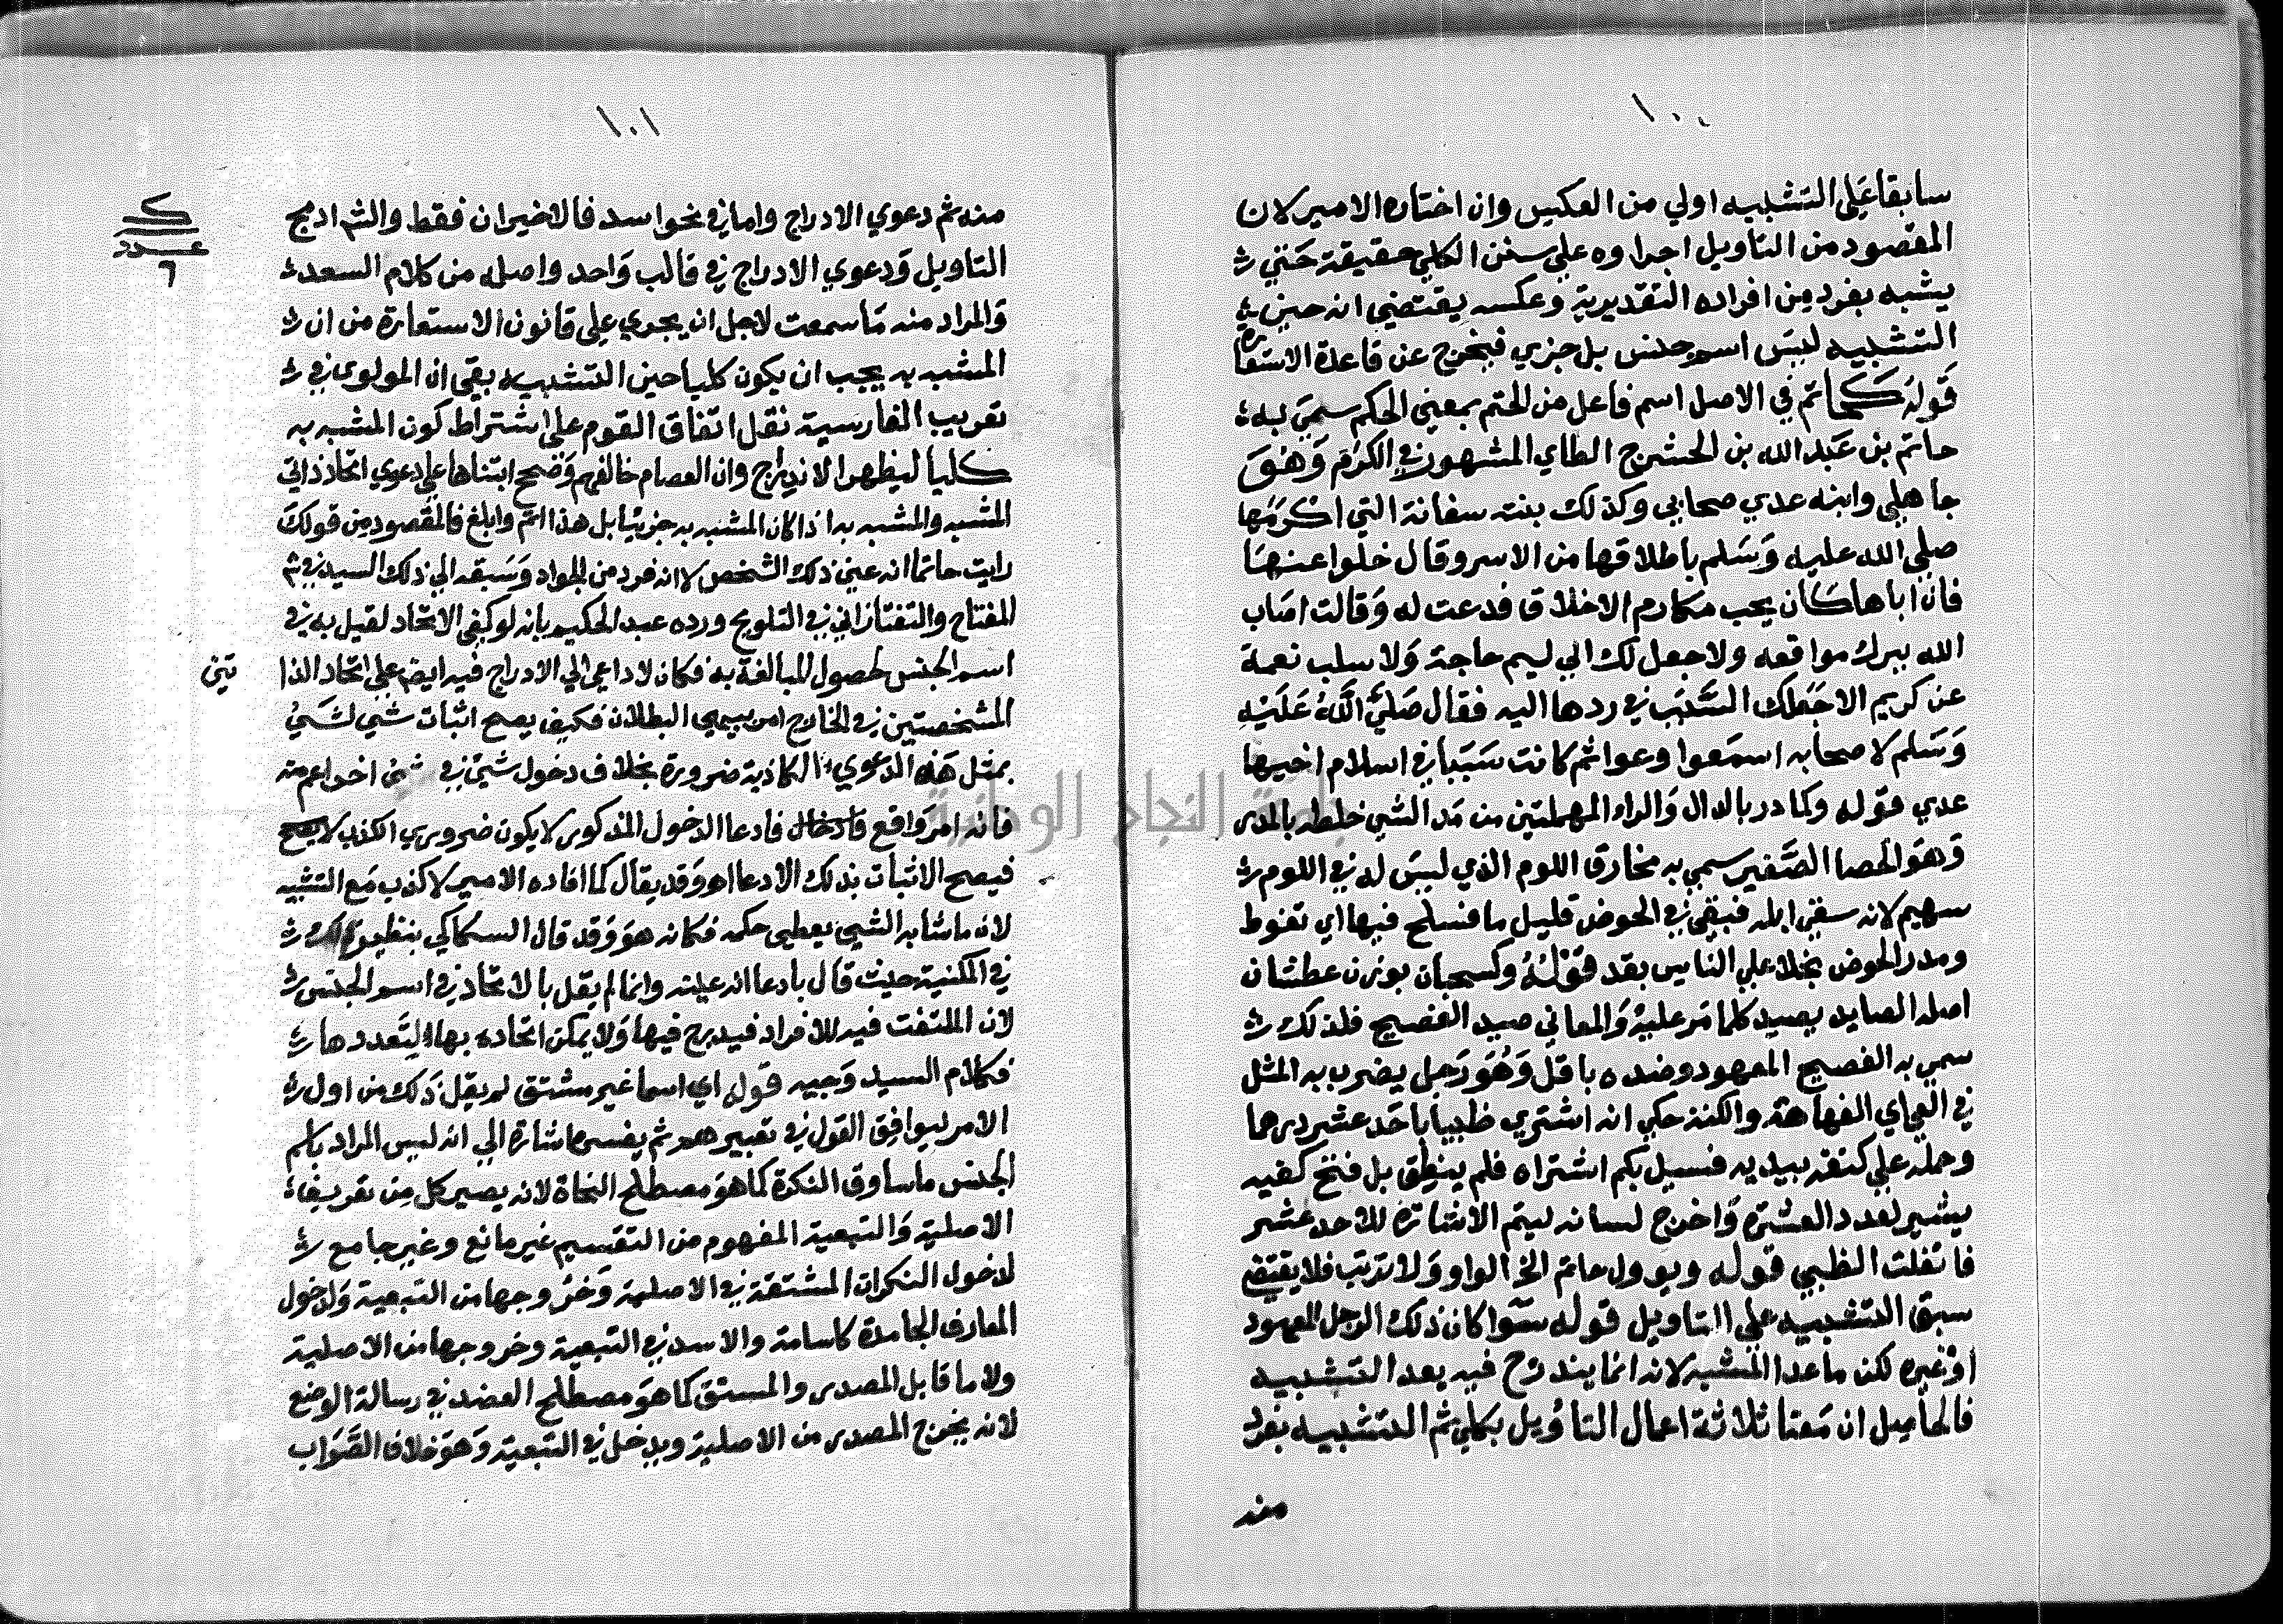 ١٠٠
سابقا على التشبيه اولي من العكس وان اختاره الامير لان
المقصود من التاويل اجراوه علي سنن الكلي حقيقة حتي
يشبه بفرد من افراده التقديرية وعكسه يقتضي انه حين
التشبيه ليس اسم جنس بل جزي فيخرج عن قاعدة الاستعارة
قوله كحاتم في الاصل اسم فاعل من الحتم بمعني الحكم سمي به
حاتم بن عبد الله بن الحشرج الطاي المشهور في الكرم وهو
جاهلي وابنه عدي صحابي وكذلك بنته سفانة التي اكرمها
صلي الله عليه وسلم باطلاقها من الاسر وقال خلوا عنها
فان اباها كان يحب مكارم الاخلاق فدعت له وقالت اصاب
الله ببرك مواقعه ولا جعل لك الي ليم حاجة ولا سلب نعمة
عن كريم الا جعلك السبب في ردها اليه فقال صلي الله عليه
وسلم لاصحابه اسمعوا وعوا ثم كانت سببا في اسلام اخيها
عدي قوله وكمادر بالدال والراء المهملتين من مدر الشي خلطه بالمدر
وهو الحصا الصغير سمي به مخارق اللوم الذي ليس له في اللوم
سهيم لانه سقي ابله فبقي في الحوض قليل ما فسلح فيها اي تغوط
ومدر الحوض بخلا علي الناس بعد قوله وكسحبان بوزن عطشان
اصله الصايد يصيد كلما مر عليه والمعاني صيد الفصيح فلذلك
سمي به الفصيح المعهود وضده باقل وهو رجل يضرب به المثل
في العي اي الفهاهة والكنة حكي انه اشتري ظبيا باحد عشر درهما
وحمله علي كتفه بيديه فسيل بكم اشتراه فلم ينطق بل فتح كفيه
يشير لعدد العشرة واخرج لسانه ليتم الاشارة للاحد عشر
فانفلت الظبي قوله ويوول حاتم الخ الواو ولا ترتب فلا يقتضي
سبق التشبيه علي التاويل قوله سوا كان ذلك الرجل المعهود
او غيره لكن ما عدا المشبه لانه انما يندرج فيه بعد التشبيه
فالحاصل ان معنا ثلاثة اعمال التاويل بكلي ثم التشبيه بفرد
منه
١٠١
منه ثم دعوي الادراج واما في نحو اسد فالاخيران فقط والشم ادمج
التاويل ودعوي الادراج في قالب واحد واصله من كلام السعد
والمراد منه ما سمعت لاجل ان يجري علي قانون الاستعارة من ان
المشبه به يجب ان يكون كليا حين التشبيه بقي ان المولوي في
تعريب الفارسية نقل اتفاق القوم علي اشتراط كون المشبه به
كليا ليظهر الاندراج وان العصام خالفهم وصحح ابتناها علي دعوي اتحاد ذاتي
المشبه والمشبه به اذا كان المشبه به جزئيا بل هذا اتم وابلغ فالمقصود من قولك
رايت حاتما انه عين ذلك الشخص لا انه فرد من الجواد وسبقه الي ذلك السيد في شم
المفتاح والتفتازاني في التلويح ورده عبد الحكيم بانه لو كفي الاتحاد لقيل به في
اسم الجنس لحصول المبالغة به فكان لا داعي الي الادراج فيه ايضا علي اتحاد الذا
تين
المشخصتين في الخارج امر بديهي البطلان فكيف يصح اثبات شي لشي
بمثل هذه الدعوي الكاذبة ضرورة بخلاف دخول شي في شي اخر اعم منه
فانه امر واقع فادعا الدخول المذكور لا يكون ضروري الكذب
فيصح الاثبات بذلك الادعا اه وقد يقال كما افاده الامير لا كذب مع التشبيه
لان ما شابه الشي يعطي حكمه فكانه هو وقد قال السكاكي بنظير ذلك
في المكنية حيث قال بادعا انه عينه وانما لم يقل بالاتحاد في اسم الجنس
لان الملتفت فيه للافراد فيدرج فيها ولا يمكن اتحاده بها لتعددها
فكلام السيد وجيه قوله اي اسما غير مشتق لم يقل ذلك من اول
الامر ليوافق القول في تعبيرهم ثم يفسره اشارة الي انه ليس المراد باسم
الجنس ما ساوق النكرة كما هو مصطلح النحاة لانه يصير كل من تعريف
الاصلية والتبعية المفهوم من التقسيم غير مانع وغير جامع
لدخول النكرات المشتقة في الاصلية وخروجها من التبعية ولدخول
المعارف الجامدة كاسامة والاسد في التبعية وخروجها من الاصلية
ولا ما قابل المصدر والمشتق كما هو مصطلح العضد في رسالة الوضع
لانه يخرج المصدر من الاصلية ويدخل في التبعية وهو خلاف الصواب
عدد
٦
جامعة النجاح الوطنية